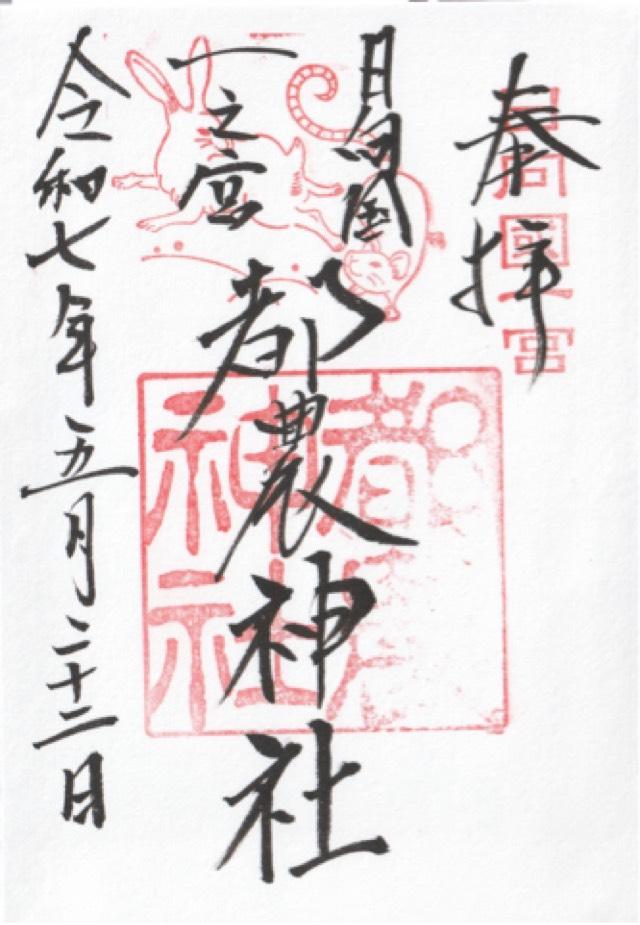 奉拝
日向國一宮
日向國
一之宮
都農神社
都農神社
令和七年五月二十二日